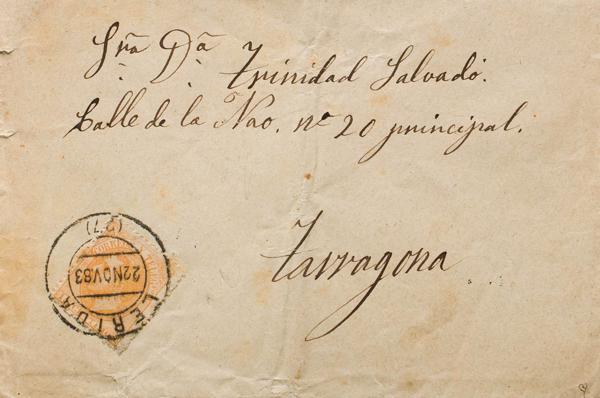 Sra Da Trinidad Salvadó.
Calle de la Nao. no 20 principal.
Tarragona
LERIDA
22NOV83
(27)